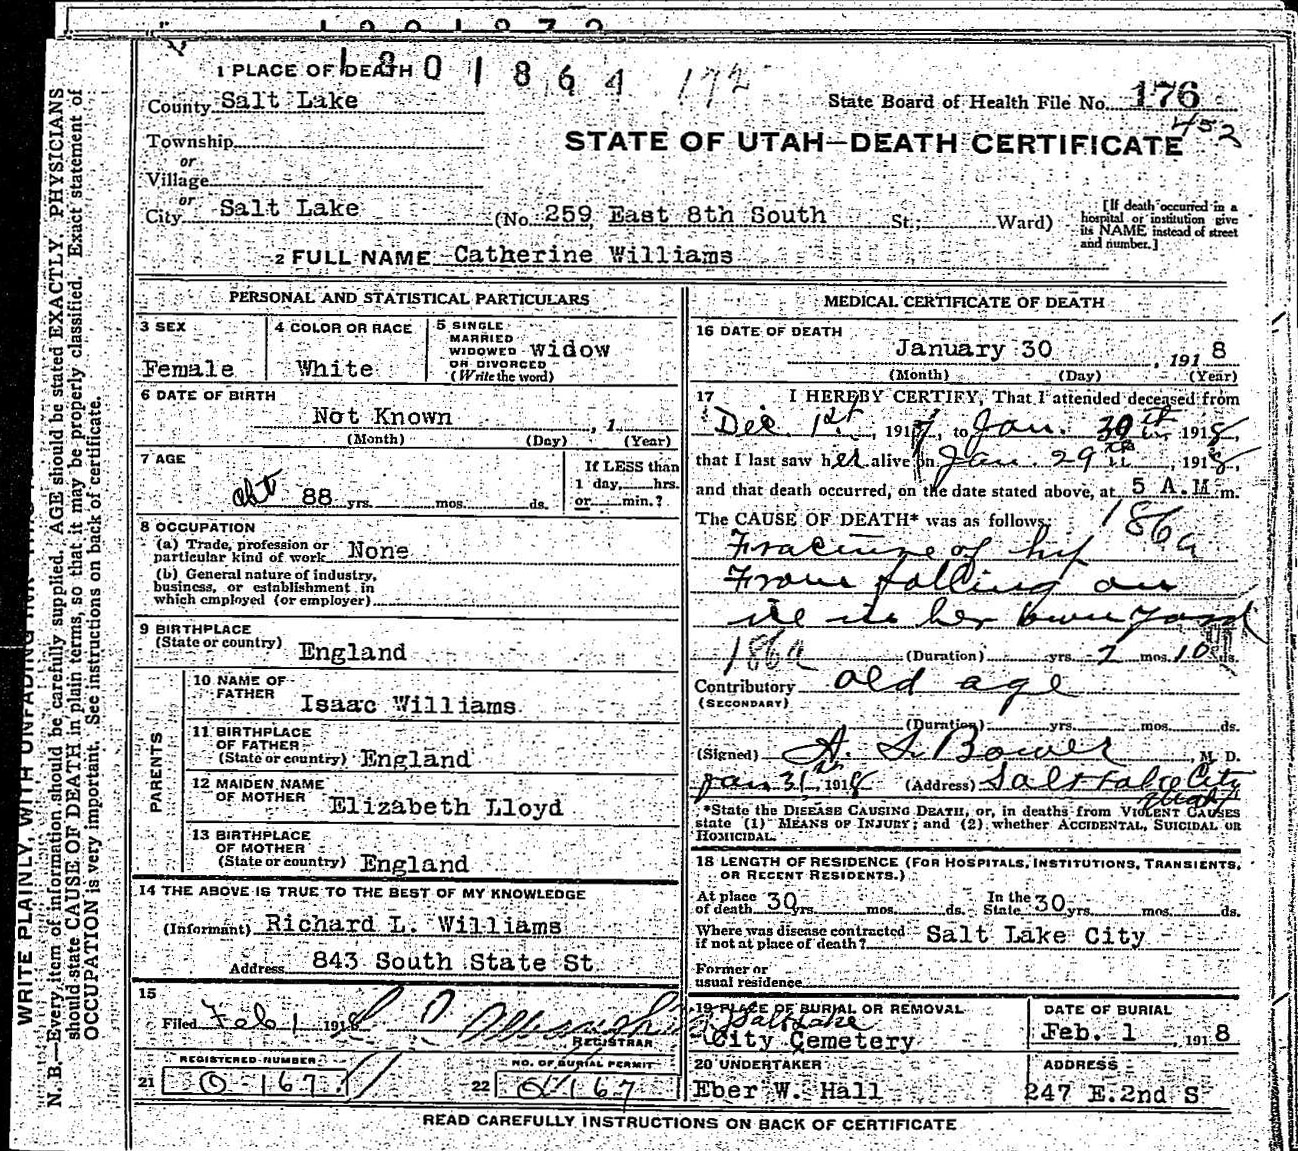 1801864 172
1 PLACE OF DEATH
County Salt Lake
State Board of Health File No. 176
452
STATE OF UTAH—DEATH CERTIFICATE
Township
or
Village
or
City Salt Lake (No. 259 East 8th South St.; Ward)
[If death occurred in a hospital or institution give its NAME instead of street and number.]
2 FULL NAME Catherine Williams
PERSONAL AND STATISTICAL PARTICULARS
3 SEX
Female
4 COLOR OR RACE
White
5 SINGLE
MARRIED
WIDOWED Widow
OR DIVORCED
(Write the word)
6 DATE OF BIRTH
Not Known , 1
(Month) (Day) (Year)
7 AGE
abt 88 yrs. mos. ds.
If LESS than
1 day, hrs.
or min.?
8 OCCUPATION
(a) Trade, profession or
particular kind of work None
(b) General nature of industry,
business, or establishment in
which employed (or employer)
9 BIRTHPLACE
(State or country) England
PARENTS
10 NAME OF
FATHER Isaac Williams
11 BIRTHPLACE
OF FATHER
(State or country) England
12 MAIDEN NAME
OF MOTHER Elizabeth Lloyd
13 BIRTHPLACE
OF MOTHER
(State or country) England
14 THE ABOVE IS TRUE TO THE BEST OF MY KNOWLEDGE
(Informant) Richard L. Williams
Address 843 South State St
15
Filed Feb 1 1918
REGISTRAR
REGISTERED NUMBER
21 O-167
NO. OF BURIAL PERMIT
22 O-167
MEDICAL CERTIFICATE OF DEATH
16 DATE OF DEATH
January 30 , 1918
(Month) (Day) (Year)
17 I HEREBY CERTIFY, That I attended deceased from
Dec. 1st, 1917, to Jan. 30th 1918,
that I last saw her alive on Jan. 29th, 1918,
and that death occurred, on the date stated above, at 5 A.M. m.
The CAUSE OF DEATH* was as follows:
186a
Fracture of hip
From falling on
in her own yard
186a (Duration) yrs. 2 mos. 10 ds.
Contributory old age
(SECONDARY)
(Duration) yrs. mos. ds.
(Signed) A. S. Bower, M. D.
Jan 31st, 1918 (Address) Salt Lake City
Utah
*State the DISEASE CAUSING DEATH, or, in deaths from VIOLENT CAUSES
state (1) MEANS OF INJURY; and (2) whether ACCIDENTAL, SUICIDAL OR
HOMICIDAL.
18 LENGTH OF RESIDENCE (FOR HOSPITALS, INSTITUTIONS, TRANSIENTS,
OR RECENT RESIDENTS.)
At place of death 30 yrs. mos. ds. In the State 30 yrs. mos. ds.
Where was disease contracted
if not at place of death? Salt Lake City
Former or
usual residence
19 PLACE OF BURIAL OR REMOVAL
Salt Lake
City Cemetery
DATE OF BURIAL
Feb. 1 , 1918
20 UNDERTAKER
Eber W. Hall
ADDRESS
247 E.2nd S
READ CAREFULLY INSTRUCTIONS ON BACK OF CERTIFICATE
WRITE PLAINLY, WITH UNFADING INK
N. B.—Every item of information should be carefully supplied. AGE should be stated EXACTLY. PHYSICIANS
should state CAUSE OF DEATH in plain terms, so that it may be properly classified. Exact statement of
OCCUPATION is very important. See instructions on back of certificate.